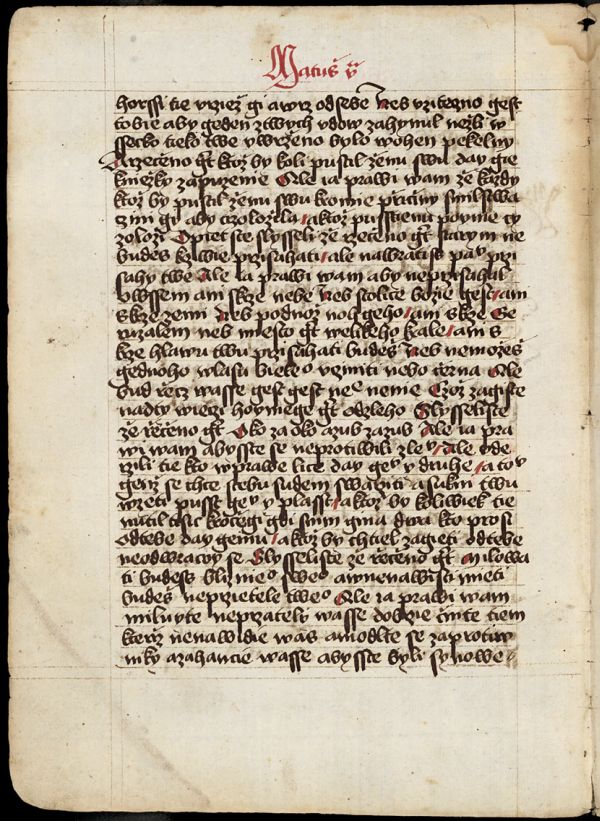 Matuš v
horssi tie vrziež gi awrz odsebe Neb vziteczno gest
tobie aby geden ztwych vdow zahynul nežli w
ssecko tielo twe vwrženo bylo wohen pekelny
Arzečeno gt ktož by koli pustil ženu swu day gie
kniežky zapuzenie Ale ia prawi wam že každy
ktož by pustil ženu swu kromie přičiny smilstwa
czini gi aby czolożila / aktož pusstienu poyme cy
zoloži Opiet ste slysseli že rzečeno gt starym ne
budeš krziwie przisahati / ale nawratiss pav przi
sahy twe Ale ia prawi wam aby neprzisahal
owssem ani skrze nebe Neb stolice božie gest / ani
skrze zemi Neb podnož noh geho / ani skrze Ge
ruzalem neb miesto gt welikeho krale / ani s
krze hlawu twu przisahati budeš Neb nemožeš
gednoho wlasu bieleo včiniti nebo černa Ale
bud rzecz wasse gest gest nee nenie Czož zagiste
nadty wiecz hoynieye gt odzleho Slysseliste
že rčeno gt Oko za oko a zub za zub Ale ia pra
wi wam abysste se neprotiwili zlev / Ale ude
rzili tie kto wprawe lice day gev y druhe / a tov
genž se chce stebu sudem swařiti asukni twu
wzeti pusst gev y plasst / aktož by koliwiek tie
nutil tisic krocegi gdi snim gina dwa kto prosi
odtebe day gemu / aktož by chtiel zagieti odtebe
neodwracoy se Slysseliste že rčeno gt Milowa
ti budess bližnieo sweo awnenawisti mieti
budeš neprzietele tweo Ale ia prawi wam
miluyte neprzately wasse dobrze čiňte tiem
kterz nenawidie was amodlte se zaprotiw
niky azahaniecie wasse abysste byli synowe